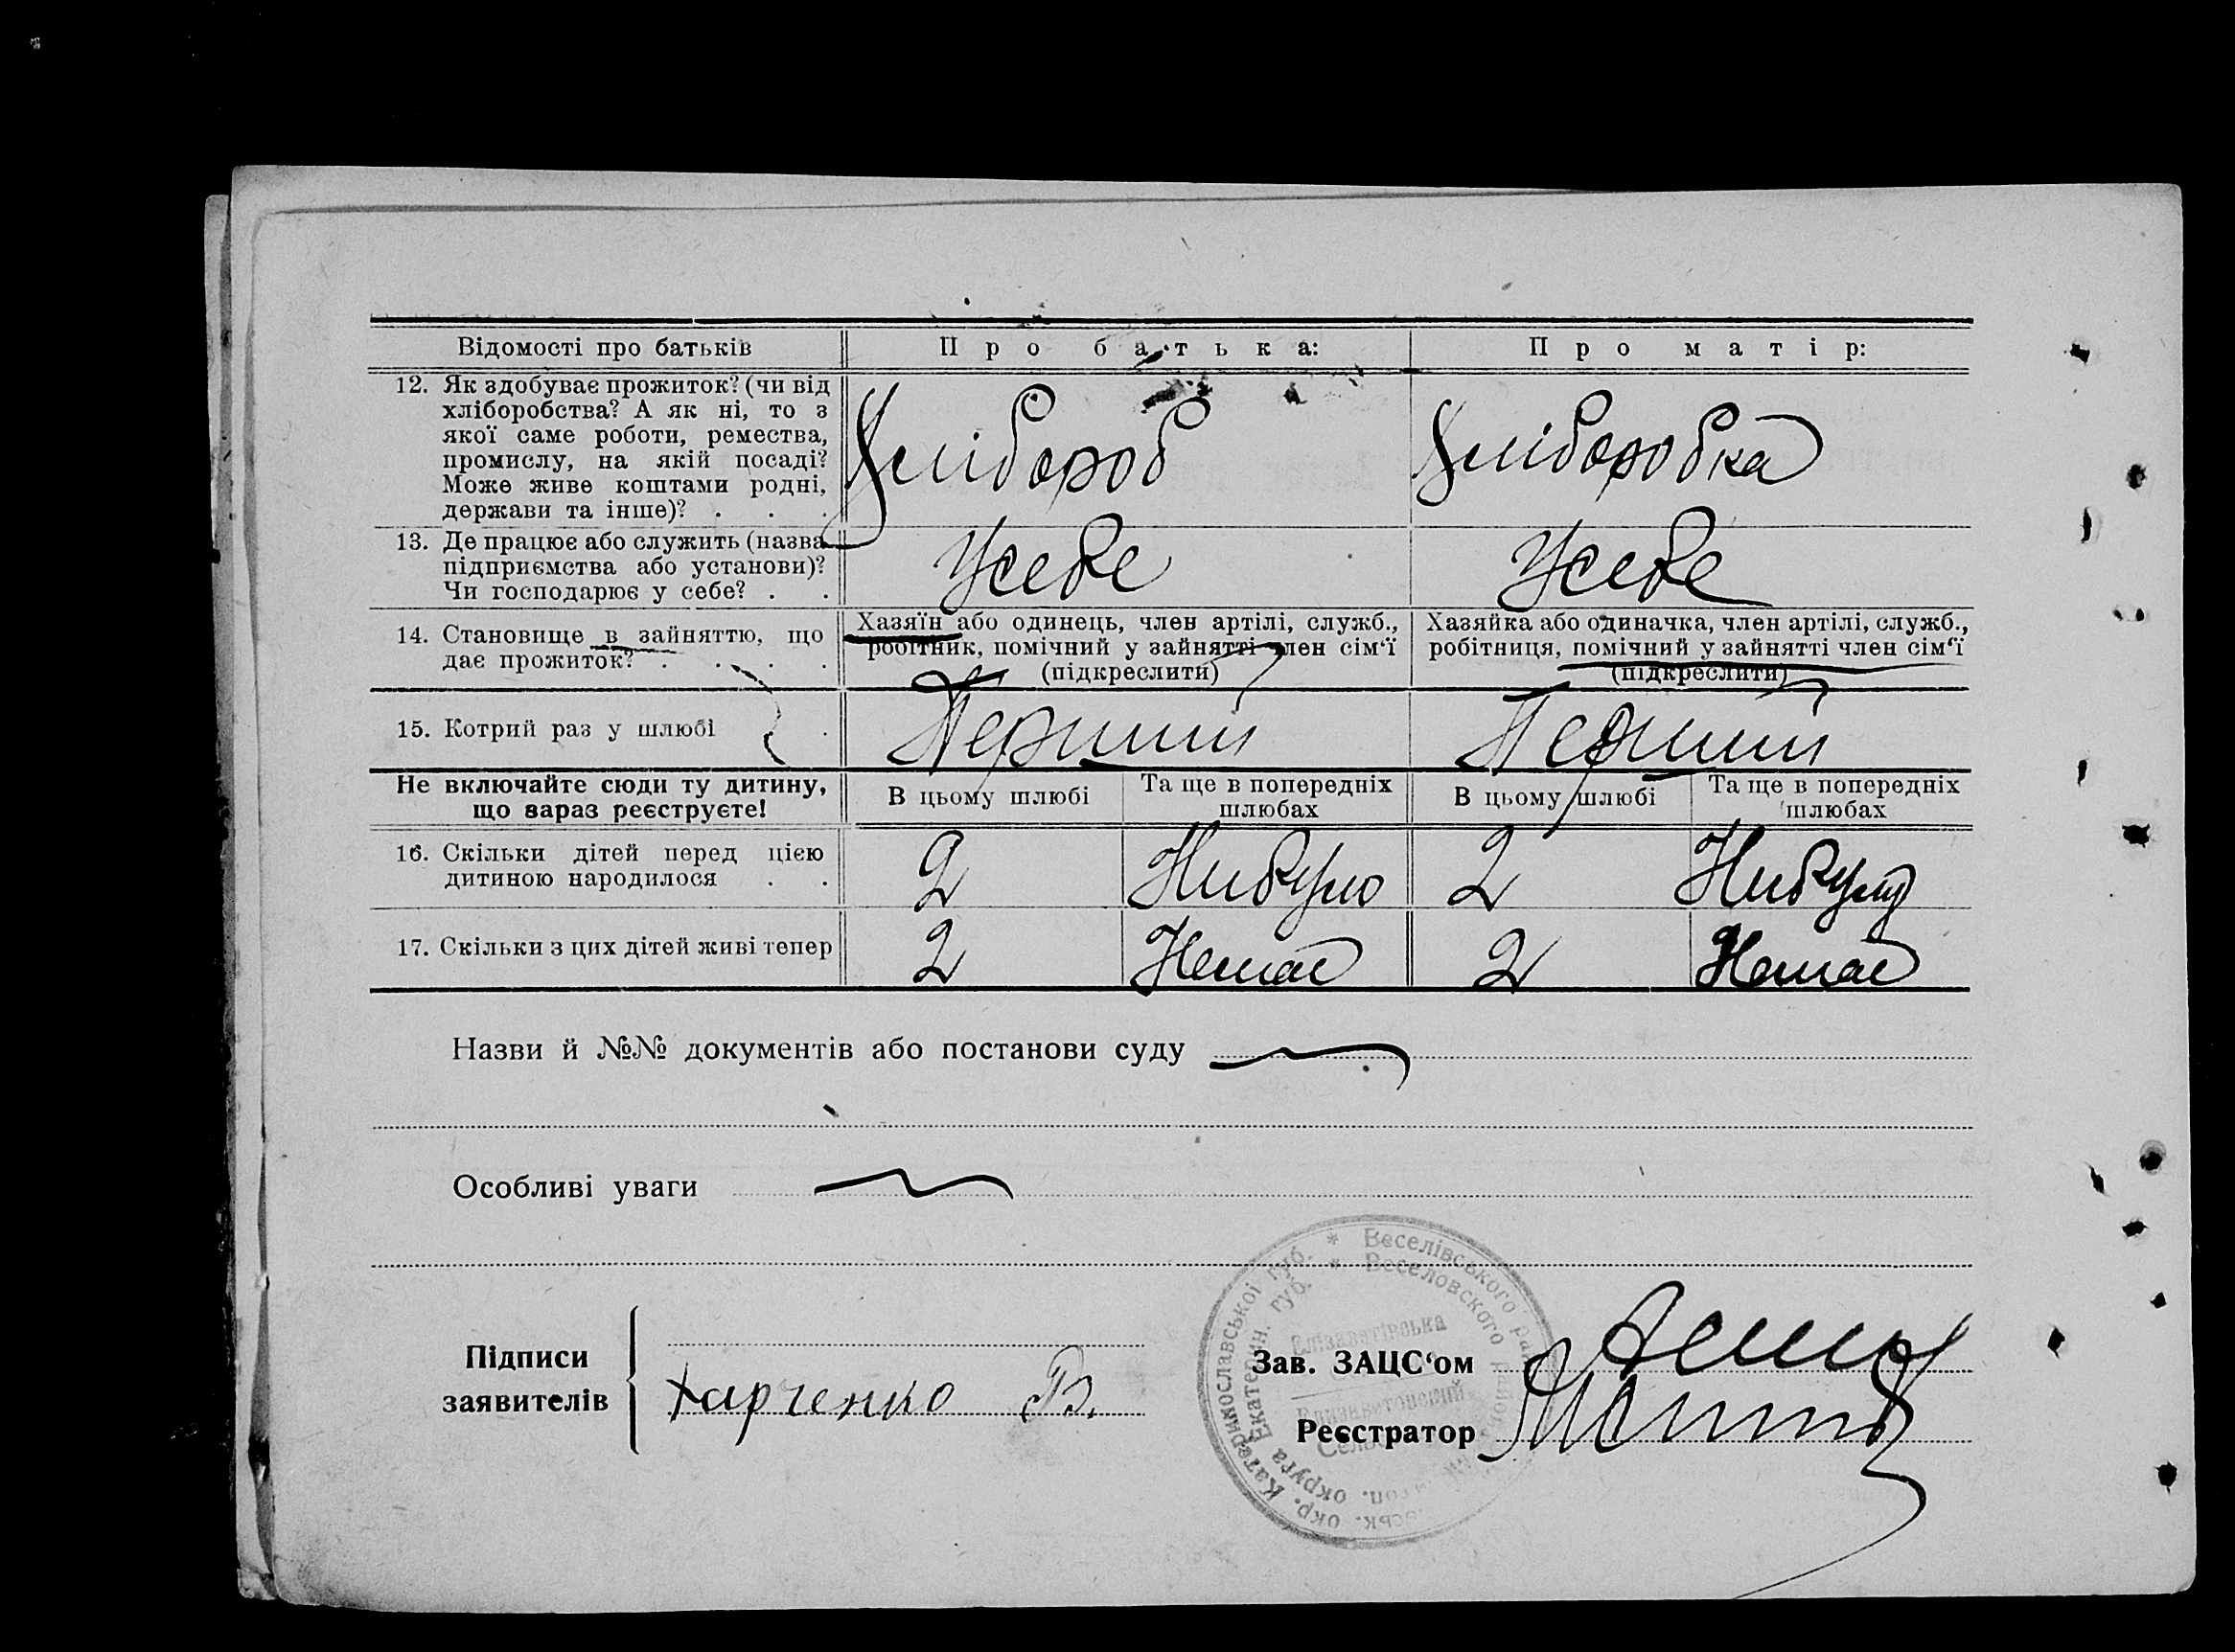 Відомості про батьків
Про батька:
Про матір:
12. Як здобуває прожиток? (чи від
хліборобства? А як ні, то з
якої саме роботи, ремества,
промислу, на якій посаді?
Може живе коштами родні,
держави та інше)? . . .
Хлібороб
Хліборобка
13. Де працює або служить (назва
підприємства або установи)?
Чи господарює у себе? . .
Усебе
Усебе
14. Становище в зайняттю, що
дає прожиток? . . . .
Хазяїн або одинець, член артілі, служб.,
робітник, помічний у зайнятті член сім‘ї
(підкреслити)
Хазяйка або одиначка, член артілі, служб.,
робітниця, помічний у зайнятті член сім‘ї
(підкреслити)
15. Котрий раз у шлюбі .
Перший
Перший
Не включайте сюди ту дитину,
що зараз реєструєте!
В цьому шлюбі
Та ще в попередніх
шлюбах
В цьому шлюбі
Та ще в попередніх
шлюбах
16. Скільки дітей перед цією
дитиною народилося . .
2
Нибуло
2
Нибуло
17. Скільки з цих дітей живі тепер
2
Немає
2
Немає
Назви й №№ документів або постанови суду
Особливі уваги
Підписи
заявителів
Харченко В.
Зав. ЗАЦС‘ом
Реєстратор
окр. Катеринославської губ. * Веселівського
округа Екатерин. губ. * Веселовского
Єлізаветівська
Елизаветовский